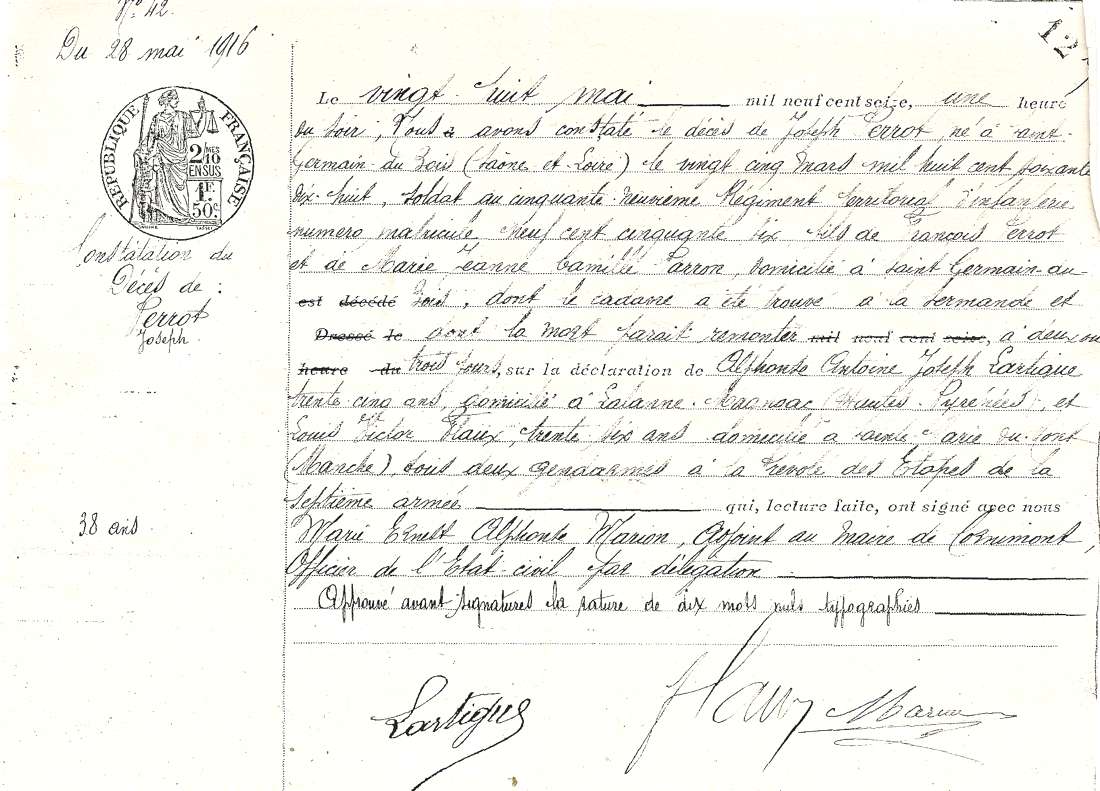 N° 42
Du 28 mai 1916
12
RÉPUBLIQUE FRANÇAISE
2/10 MES
EN SUS
1F.
50c.
Constatation du
Décès de :
Perrot
Joseph
38 ans
Le vingt huit mai mil neuf cent seize, une heure
du soir, Nous avons constaté le décès de Joseph Perrot, né à Saint-
Germain-du-Bois (Saône et-Loire) le vingt cinq Mars mil huit cent soixante
dix-huit, soldat au cinquante neuvième Régiment Territorial d'Infanterie
numero matricule neuf cent cinquante six fils de François Perrot
et de Marie Jeanne Camille Parron, domicilié à Saint Germain-du
est décédé Bois, dont le cadavre a été trouvé à la Sermande et
Dressé le dont la mort parait remonter mil neuf cent seize, à deux ou
heure du trois jours, sur la déclaration de Alphonse Antoine Joseph Lartigue
trente cinq ans, domicilié à Lalanne-Magnoac (Hautes-Pyrénées), et
Louis Victor Flaux, trente six ans domicilié à Sainte Marie du-Mont
(Manche) tous deux gendarmes à la Prévoté des Etapes de la
septième armée qui, lecture faite, ont signé avec nous
Marie Ernest Alphonse Marion, Adjoint au maire de Cornimont,
Officier de l'Etat-civil par délégation
Approuvé avant signatures la rature de dix mots nuls typographiés
Lartigue
Flaux
Marion